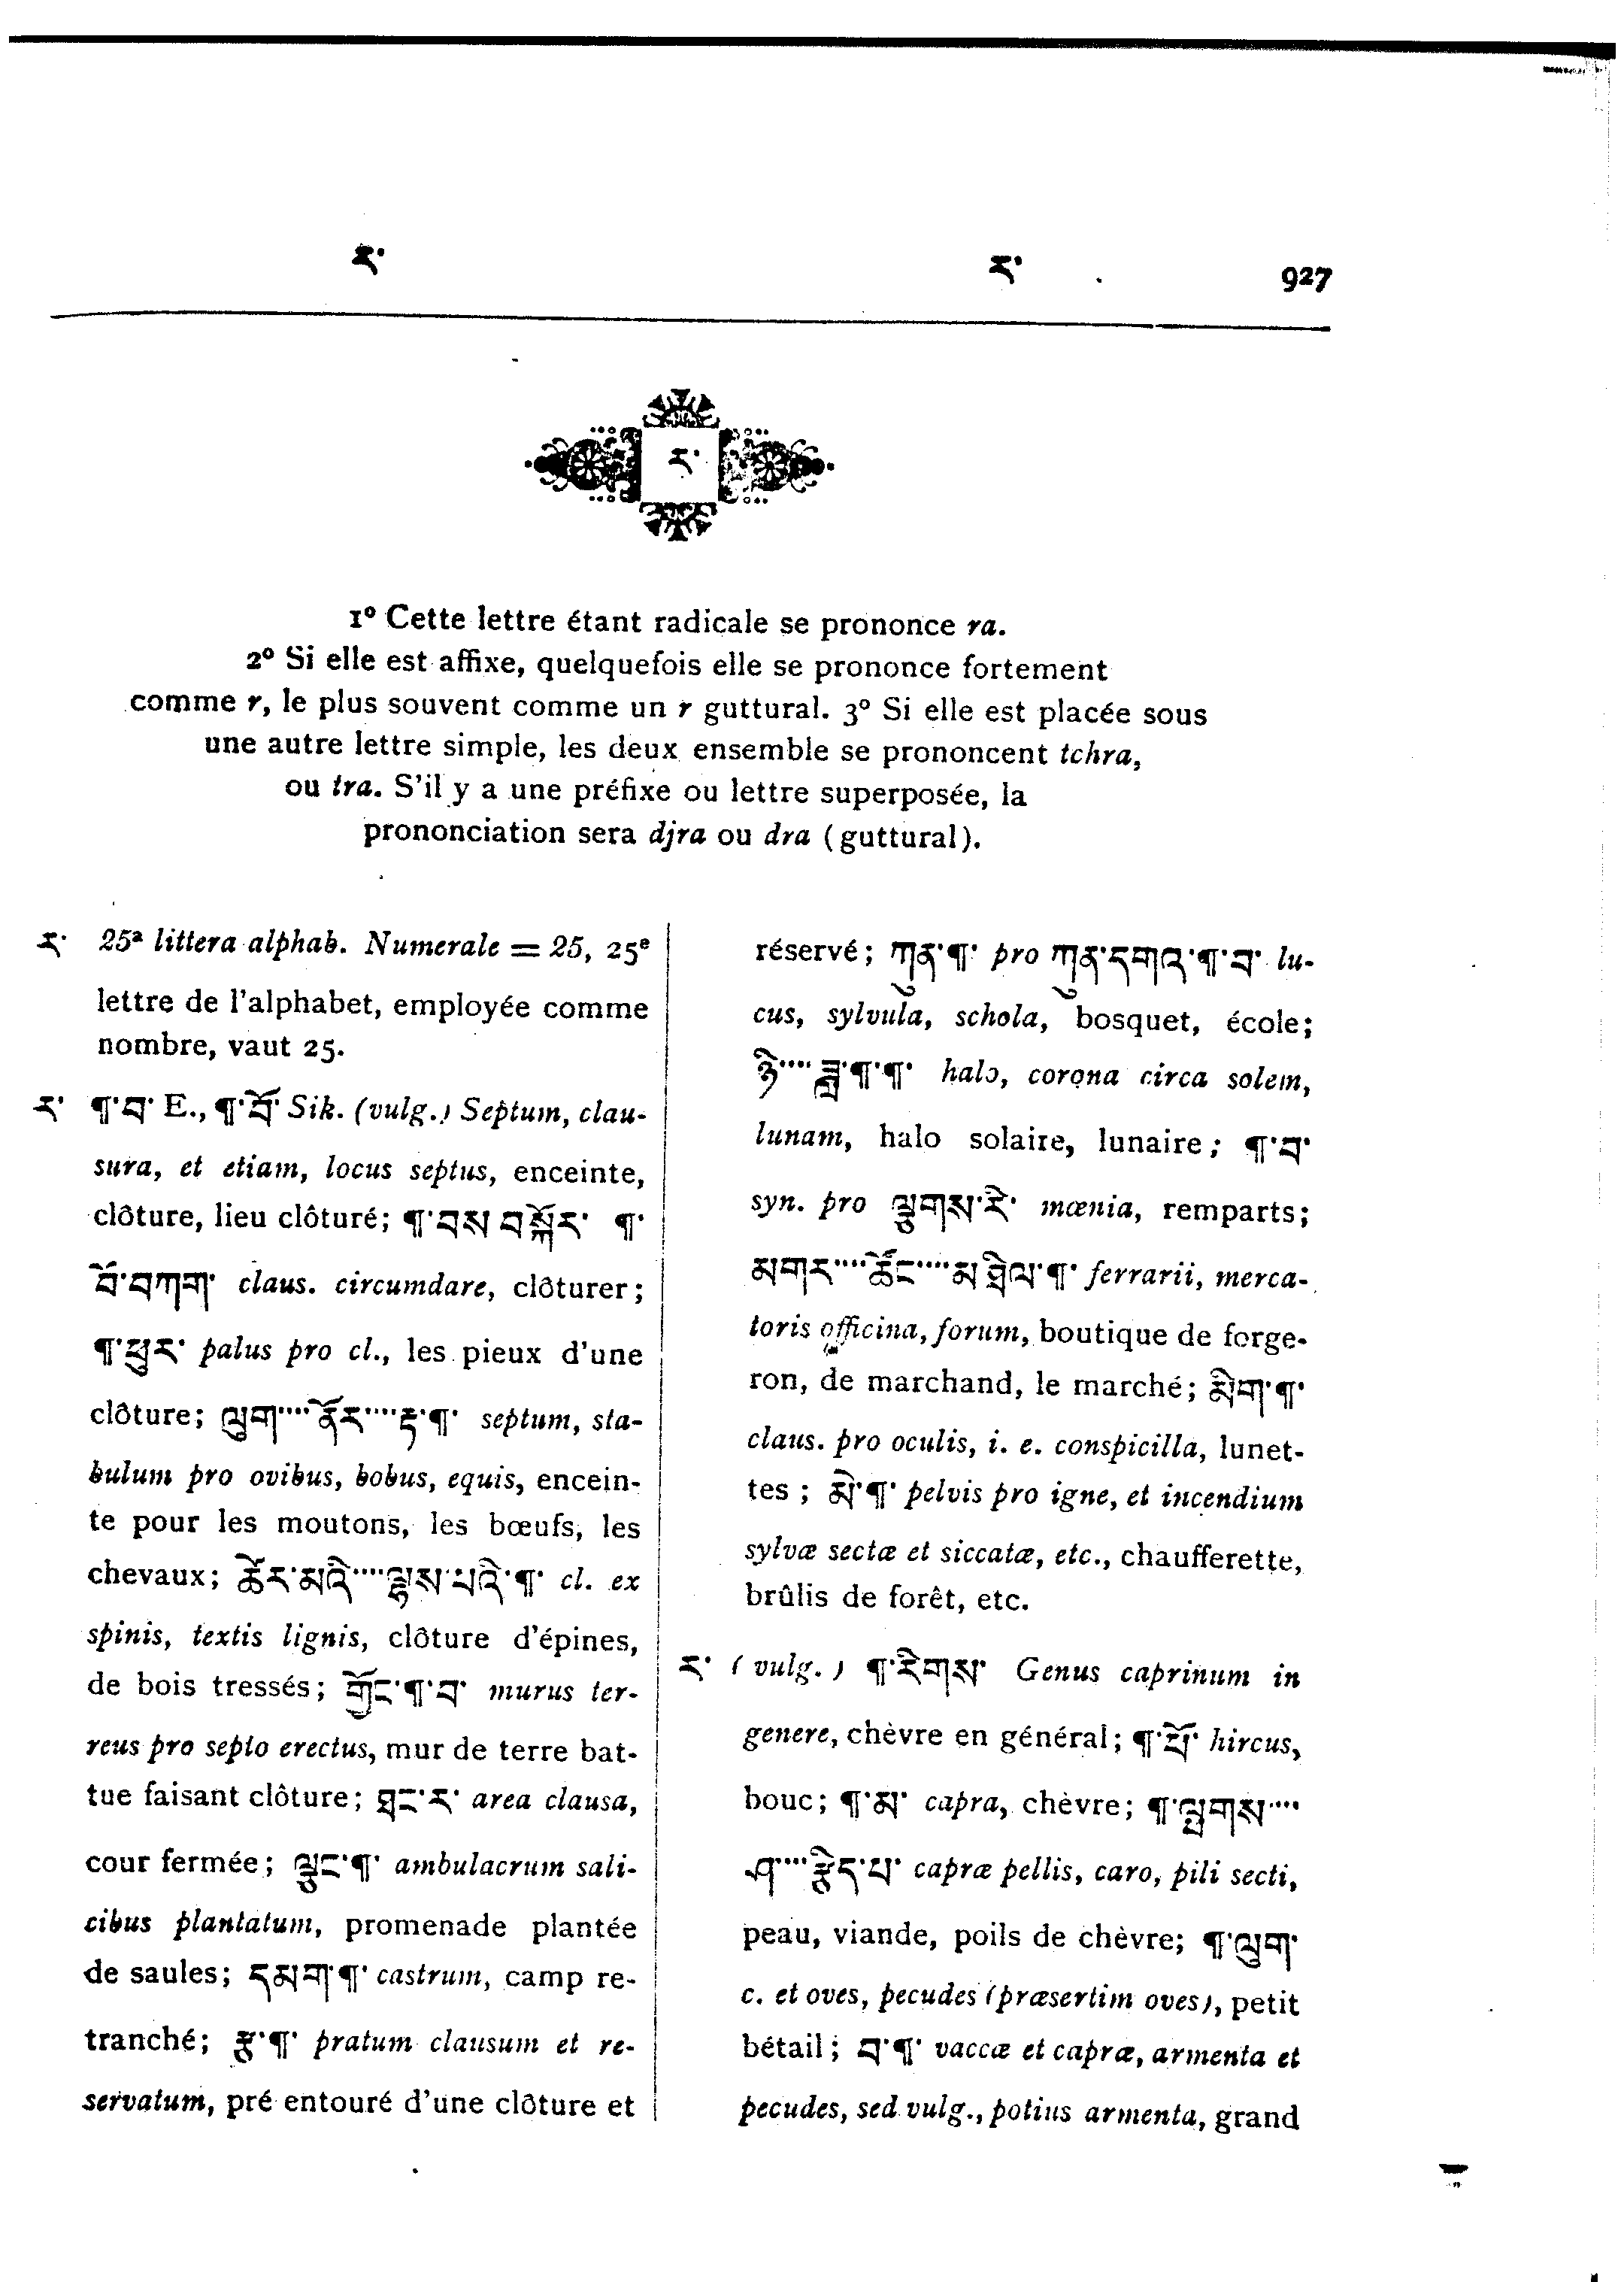 ར་ ར་ 927
ར་
1º Cette lettre étant radicale se prononce ra.
2º Si elle est affixe, quelquefois elle se prononce fortement
comme r, le plus souvent comme un r guttural. 3º Si elle est placée sous
une autre lettre simple, les deux ensemble se prononcent tchra,
ou tra. S'il y a une préfixe ou lettre superposée, la
prononciation sera djra ou dra (guttural).
ར་ 25ª littera alphab. Numerale = 25, 25e
lettre de l'alphabet, employée comme
nombre, vaut 25.
ར་ ¶་བ་ E., ¶་བོ་ Sik. (vulg.) Septum, clau-
sura, et etiam, locus septus, enceinte,
clôture, lieu clôturé; ¶་བས བསྐོར་ ¶་
བོ་བཀག་ claus. circumdare, clôturer;
¶་ཕུར་ palus pro cl., les pieux d'une
clôture; ལུག་···ནོར་···རྟ་¶་ septum, sta-
bulum pro ovibus, bobus, equis, encein-
te pour les moutons, les bœufs, les
chevaux; ཚེར་མའི་···ལྷས་པའི་¶་ cl. ex
spinis, textis lignis, clôture d'épines,
de bois tressés; གྱོང་¶་བ་ murus ter-
reus pro septo erectus, mur de terre bat-
tue faisant clôture; ཐང་ར་ area clausa,
cour fermée; ལྕང་¶་ ambulacrum sali-
cibus plantatum, promenade plantée
de saules; དམག་¶་ castrum, camp re-
tranché; རྩྭ་¶་ pratum clausum et re-
servatum, pré entouré d'une clôture et
réservé; ཀུན་¶་ pro ཀུན་དགའ་¶་བ་ lu-
cus, sylvula, schola, bosquet, école;
ཉི་···ཟླ་¶་¶་ halo, corona circa solem,
lunam, halo solaire, lunaire; ¶་བ་
syn. pro ལྕགས་རི་ mœnia, remparts;
མགར་···ཚོང་···མ ཐིལ་¶་ ferrarii, merca-
toris officina, forum, boutique de forge-
ron, de marchand, le marché; མིག་¶་
claus. pro oculis, i. e. conspicilla, lunet-
tes; མེ་¶་ pelvis pro igne, et incendium
sylvæ sectæ et siccatæ, etc., chaufferette,
brûlis de forêt, etc.
ར་ (vulg.) ¶་རིགས་ Genus caprinum in
genere, chèvre en général; ¶་ཕོ་ hircus,
bouc; ¶་མ་ capra, chèvre; ¶་ལྤགས་···
ཤ་···རྩིད་པ་ capræ pellis, caro, pili secti,
peau, viande, poils de chèvre; ¶་ལུག་
c. et oves, pecudes (præsertim oves), petit
bétail; བ་¶་ vaccæ et capræ, armenta et
pecudes, sed vulg., potius armenta, grand